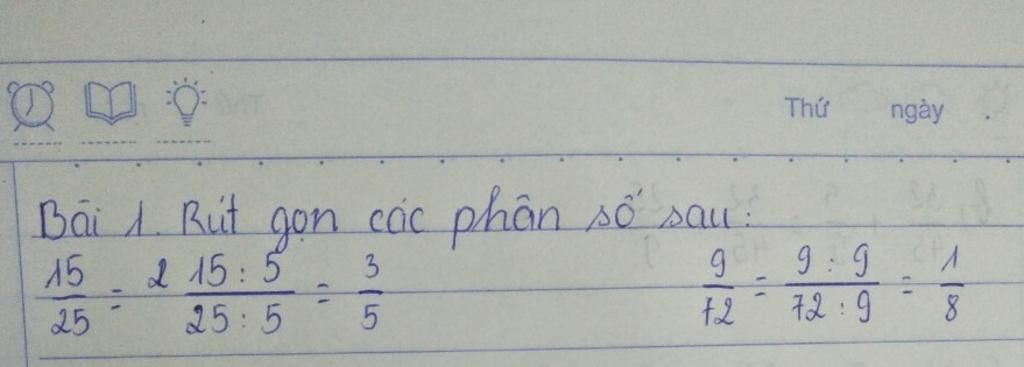 Thứ ngày
Bài 1. Rút gọn các phân số sau:
15/25 = 2 15 : 5/25 : 5 = 3/5 9/72 = 9 : 9/72 : 9 = 1/8